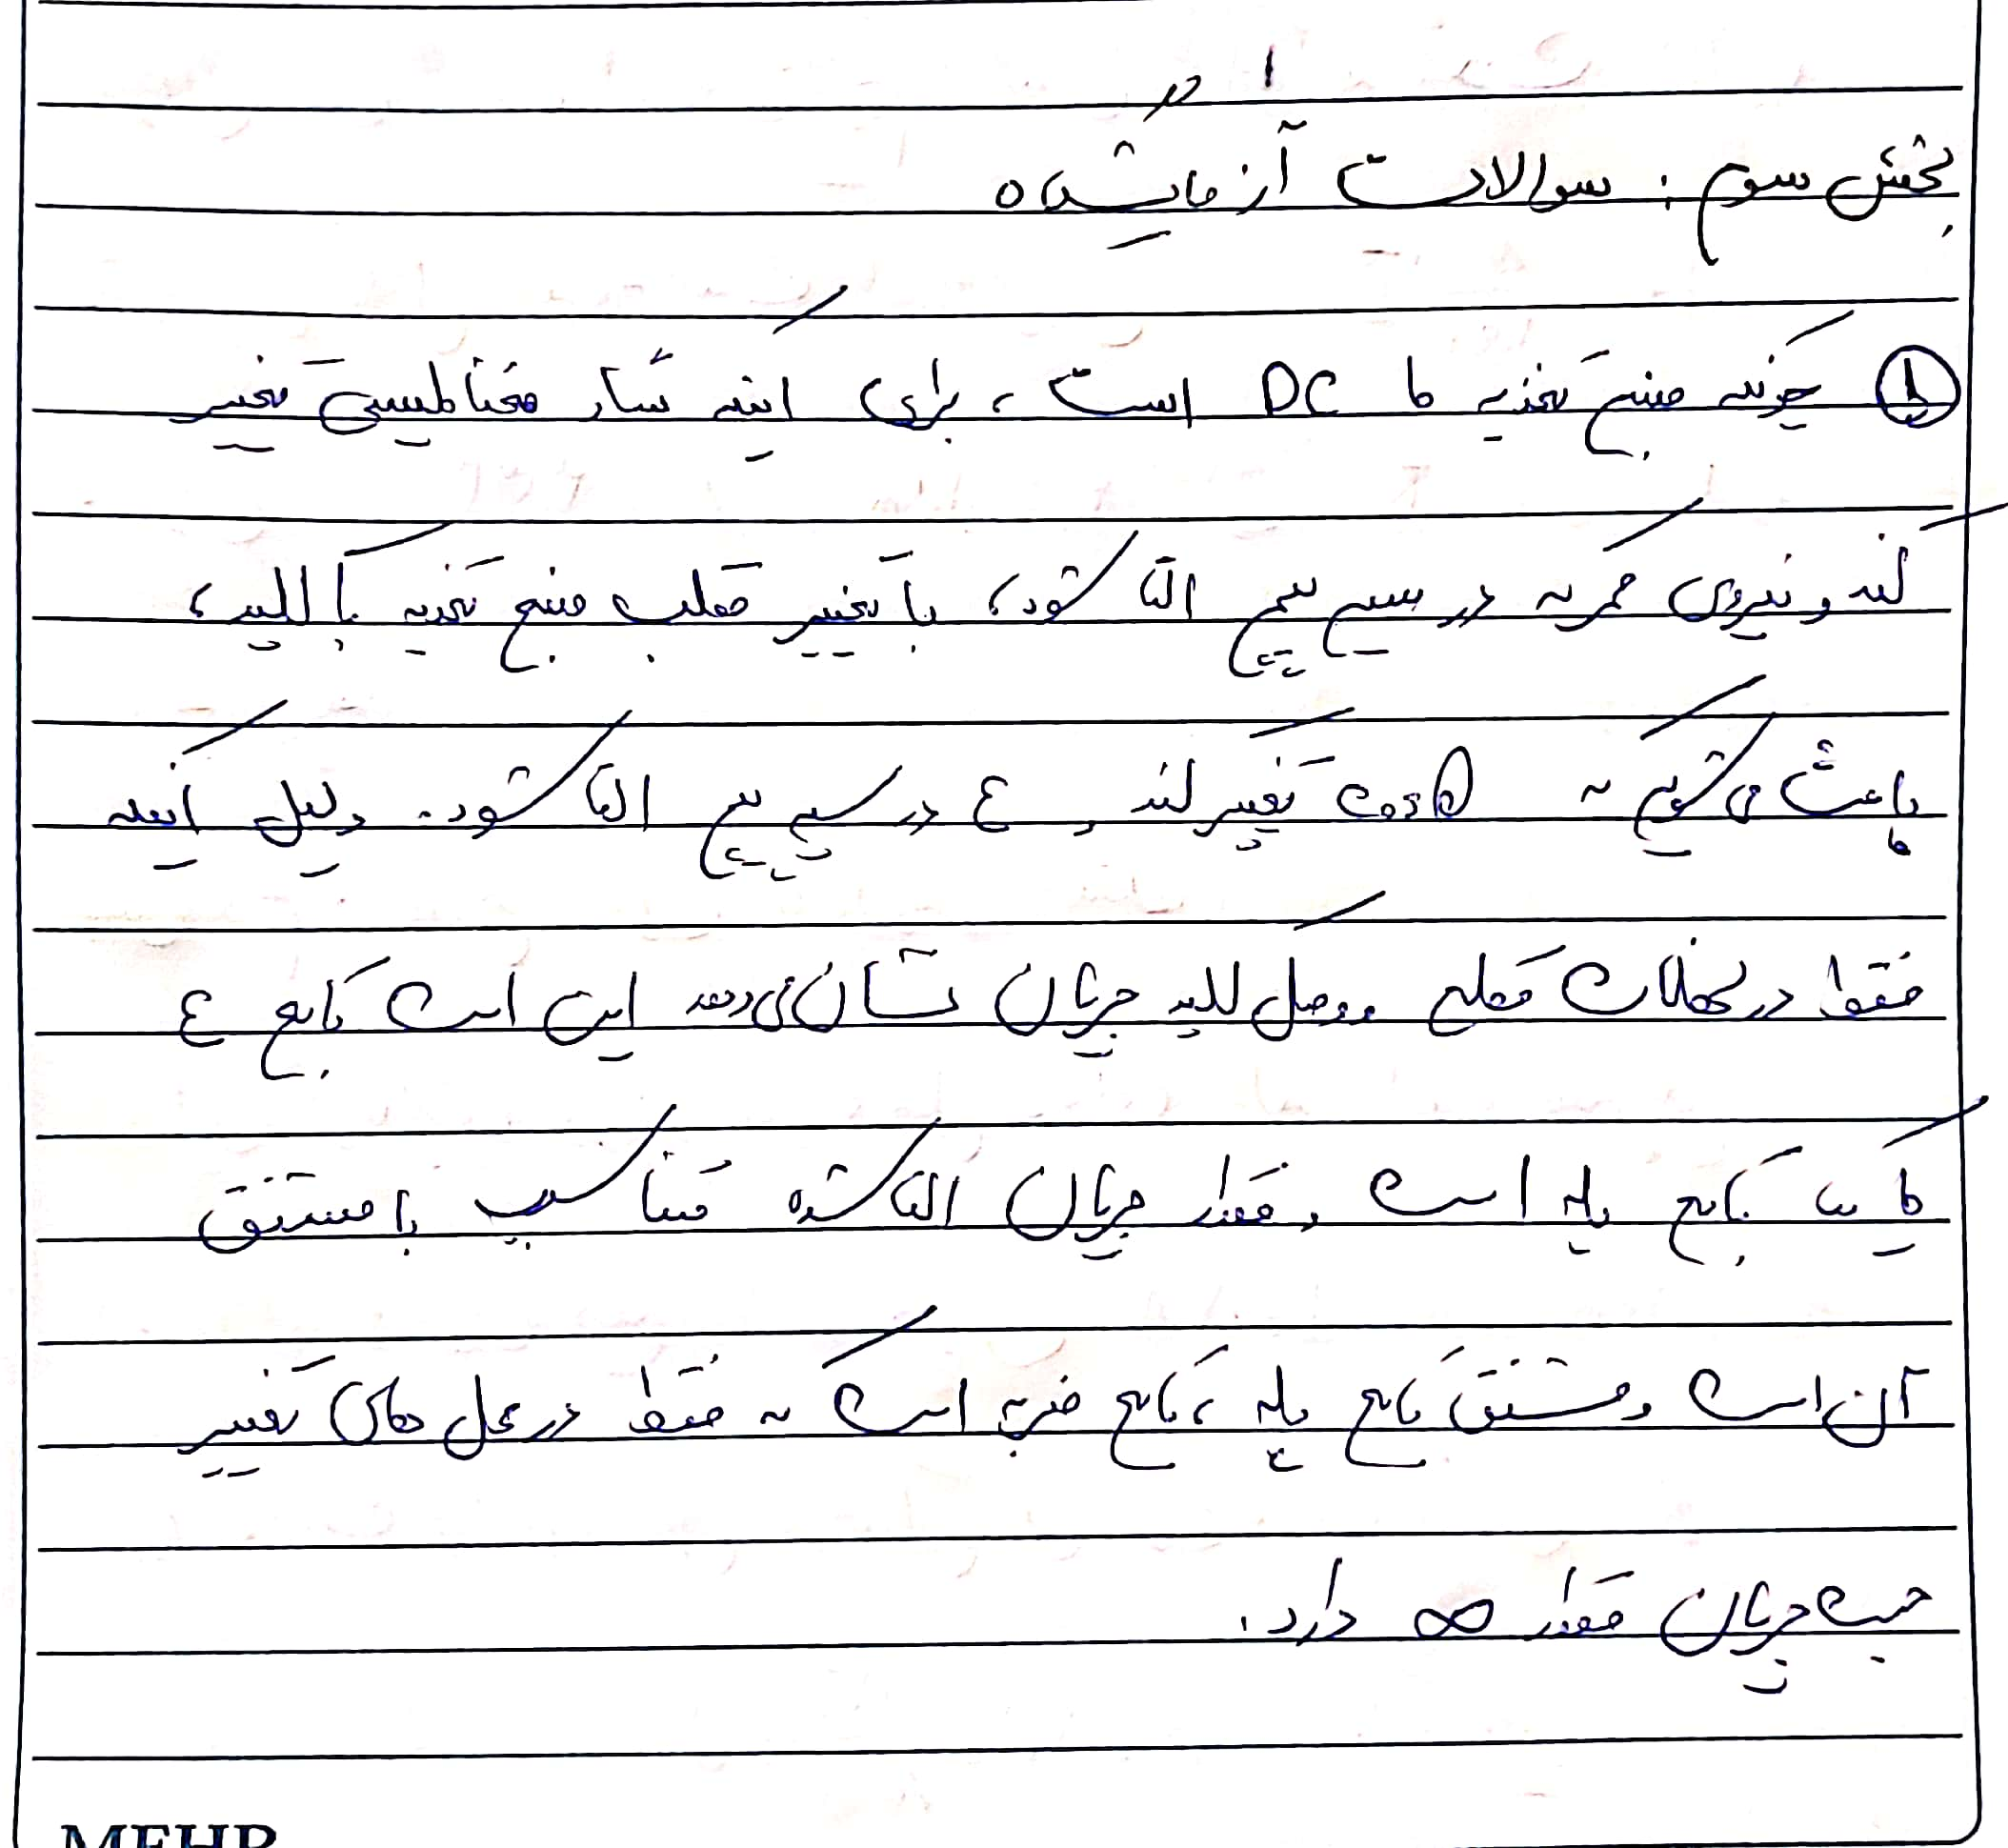 بخش سوم : سوالات آزمایشگاه
① چونکه منبع تغذیه ما DC است ، برای اینکه شار مغناطیسی تغییر
کند و نیروی محرکه در سیم پیچ القا شود، با تغییر قطب منبع تغذیه با کلید،
باعث می شویم که cosθ تغییر کند و ε در سیم پیچ القا شود. دلیل اینکه
فقط در لحظات قطع و وصل کلید جریان نشان می دهد این است که تابع ε
ما یک تابع پله است و مقدار جریان القا شده متناسب با مشتق
آن است و مشتق تابع پله ، تابع ضربه است که فقط در محل های تغییر
جهت جریان مقدار ∞ دارد.
MEHR